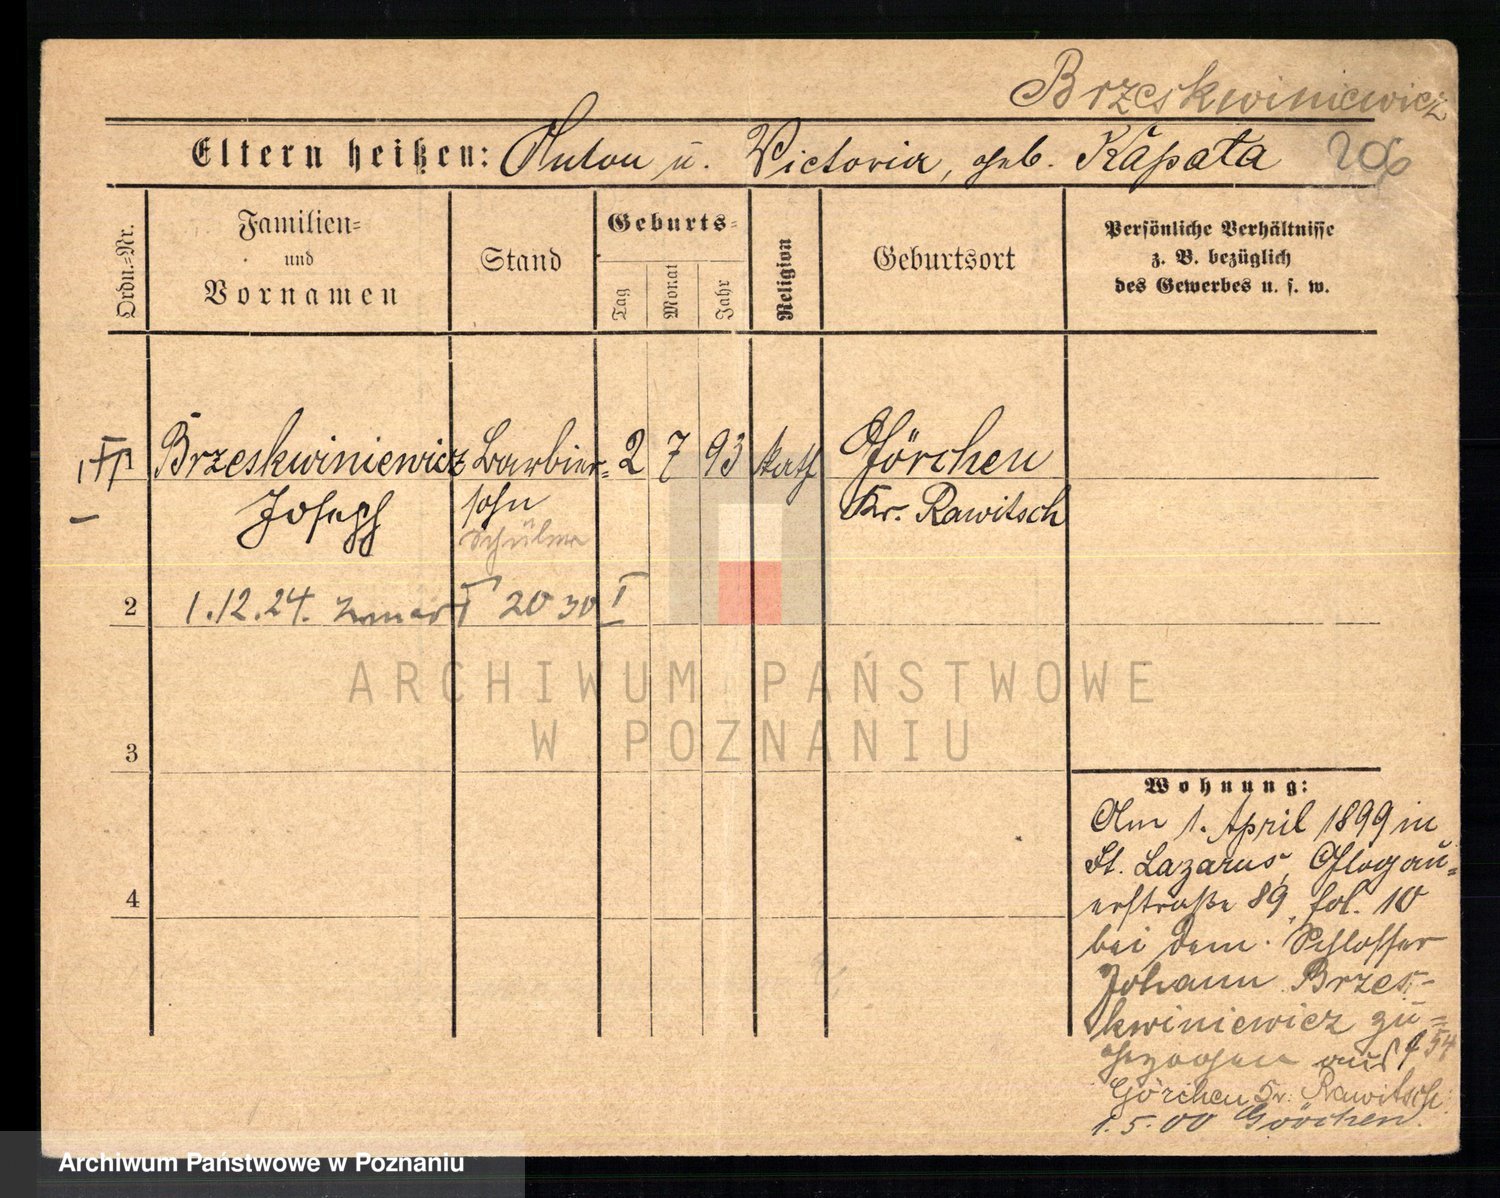 Brzeskwiniewicz
Eltern heißen: Anton u. Victoria, geb. Kapata
206
Ordn.=Nr.
Familien=
und
Vornamen
Stand
Geburts=
Tag
Monat
Jahr
Religion
Geburtsort
Persönliche Verhältnisse
z. B. bezüglich
des Gewerbes u. s. w.
Brzeskwiniewicz Barbier= 2 7 93 kath Görchen
Joseph sohn Kr. Rawitsch
Schüler
2 1.12.24. 20 30 I
ARCHIWUM PAŃSTWOWE
W POZNANIU
3
Wohnung:
Am 1. April 1899 in
St. Lazarus, Glogau=
4
erstraße 89, fol. 10
bei dem Schlosser
Johann Brzes=
kwiniewicz zu=
gezogen aus
Görchen Kr. Rawitsch.
1.5.00 Görchen.
Archiwum Państwowe w Poznaniu